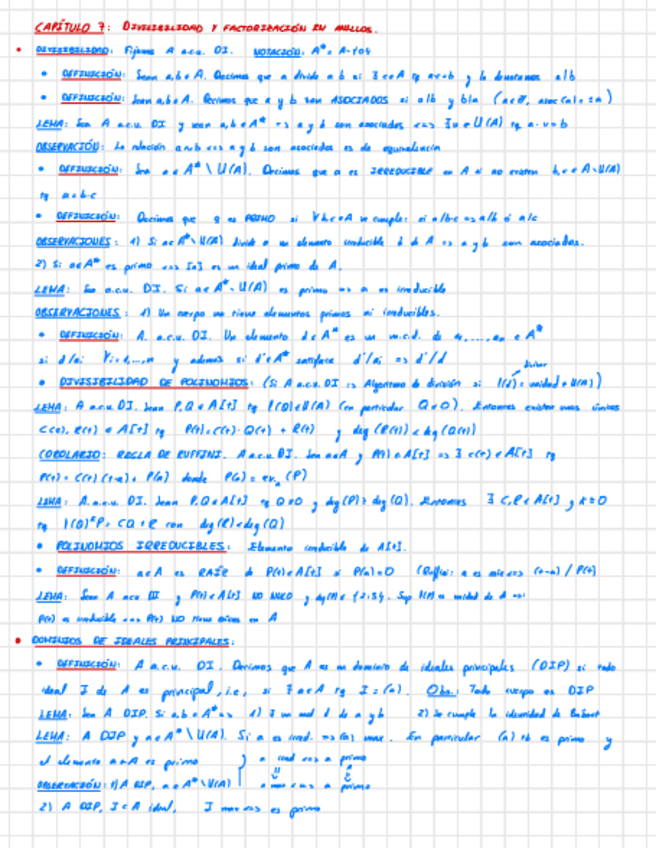 CAPÍTULO 7: DIVISIBILIDAD Y FACTORIZACIÓN EN ANILLOS.
• DIVISIBILIDAD: Fijamos A a.c.u. DI. NOTACIÓN: A* = A-{0}
• DEFINICIÓN: Sean a,b∈A. Decimos que a divide a b si ∃c∈A tq ac=b y lo denotamos a|b
• DEFINICIÓN: Sean a,b∈A. Decimos que a y b son ASOCIADOS si a|b y b|a
LEMA: Sea A a.c.u. DI y sean a,b∈A* => a y b son asociados <=> ∃u∈U(A) tq a·u=b
OBSERVACIÓN: La relación a~b <=> a y b son asociados es de equivalencia
• DEFINICIÓN: Sea a∈A*\U(A). Decimos que a es IRREDUCIBLE en A si no existen b,c∈A\U(A)
tq a=b·c
• DEFINICIÓN: Decimos que a es PRIMO si ∀b,c∈A se cumple: si a|b·c => a|b ó a|c
OBSERVACIONES: 1) Si a∈A*\U(A) divide a un elemento irreducible b de A => a y b son asociados.
2) Si a∈A* es primo <=> (a) es un ideal primo de A.
LEMA: Sea a.c.u. DI. Si a∈A*\U(A) es primo => a es irreducible
OBSERVACIONES: 1) Un cuerpo no tiene elementos primos ni irreducibles.
• DEFINICIÓN: A. a.c.u. DI. Un elemento d∈A* es un m.c.d. de a₁,...,aₙ∈A*
si d/aᵢ ∀i=1,...,n y además si d'∈A* satisface d'/aᵢ => d'/d
• DIVISIBILIDAD DE POLINOMIOS: (Si A a.c.u. DI => Algoritmo de división si
LEMA: A a.c.u. DI. Sean P,Q∈A[t] tq l(Q)∈U(A) (en particular Q≠0). Entonces existen unos únicos
C(t), R(t)∈A[t] tq P(t)=C(t)·Q(t)+R(t) y deg(R(t))<deg(Q(t))
COROLARIO: REGLA DE RUFFINI. A a.c.u. DI. Sea a∈A y P(t)∈A[t] => ∃ c(t)∈A[t] tq
P(t)=C(t)(t-a)+P(a) donde P(a)=evₐ(P)
LEMA: A. a.c.u. DI. Sean P,Q∈A[t] tq Q≠0 y deg(P)≥deg(Q). Entonces ∃ C,R∈A[t] y k≥0
tq l(Q)ᵏP=CQ+R con deg(R)<deg(Q)
• POLINOMIOS IRREDUCIBLES: Elemento irreducible de A[t].
• DEFINICIÓN: a∈A es RAÍZ de P(t)∈A[t] si P(a)=0 (Ruffini: a es raíz <=> (t-a)/P(t)
LEMA: Sean A acu DI y P(t)∈A[t] NO NULO y deg(P)∈{2,3}. Sup l(P) es unidad de A =>
P(t) es irreducible <=> P(t) NO tiene raíces en A
• DOMINIOS DE IDEALES PRINCIPALES:
• DEFINICIÓN: A a.c.u. DI. Decimos que A es un dominio de ideales principales (DIP) si todo
ideal I de A es principal, i.e, si ∃a∈A tq I=(a). Obs: Todo cuerpo es DIP
LEMA: Sea A DIP. Si a,b∈A* => 1) ∃ un mcd d de a y b 2) Se cumple la identidad de Bézout
LEMA: A DIP y a∈A*\U(A). Si a es irred. => (a) max. En particular (a) es primo y
el elemento a∈A es primo a irred <=> a primo
OBSERVACIÓN: 1) A DIP, a∈A*\U(A)
2) A DIP, I⊂A ideal, I max <=> es primo